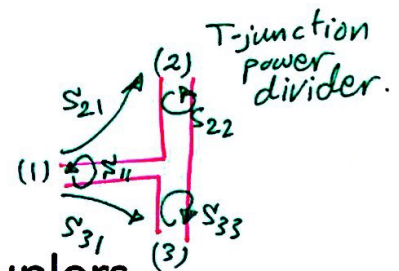 T-junction
power
divider.
(2)
S21
S22
(1)
S11
S31
S33
(3)